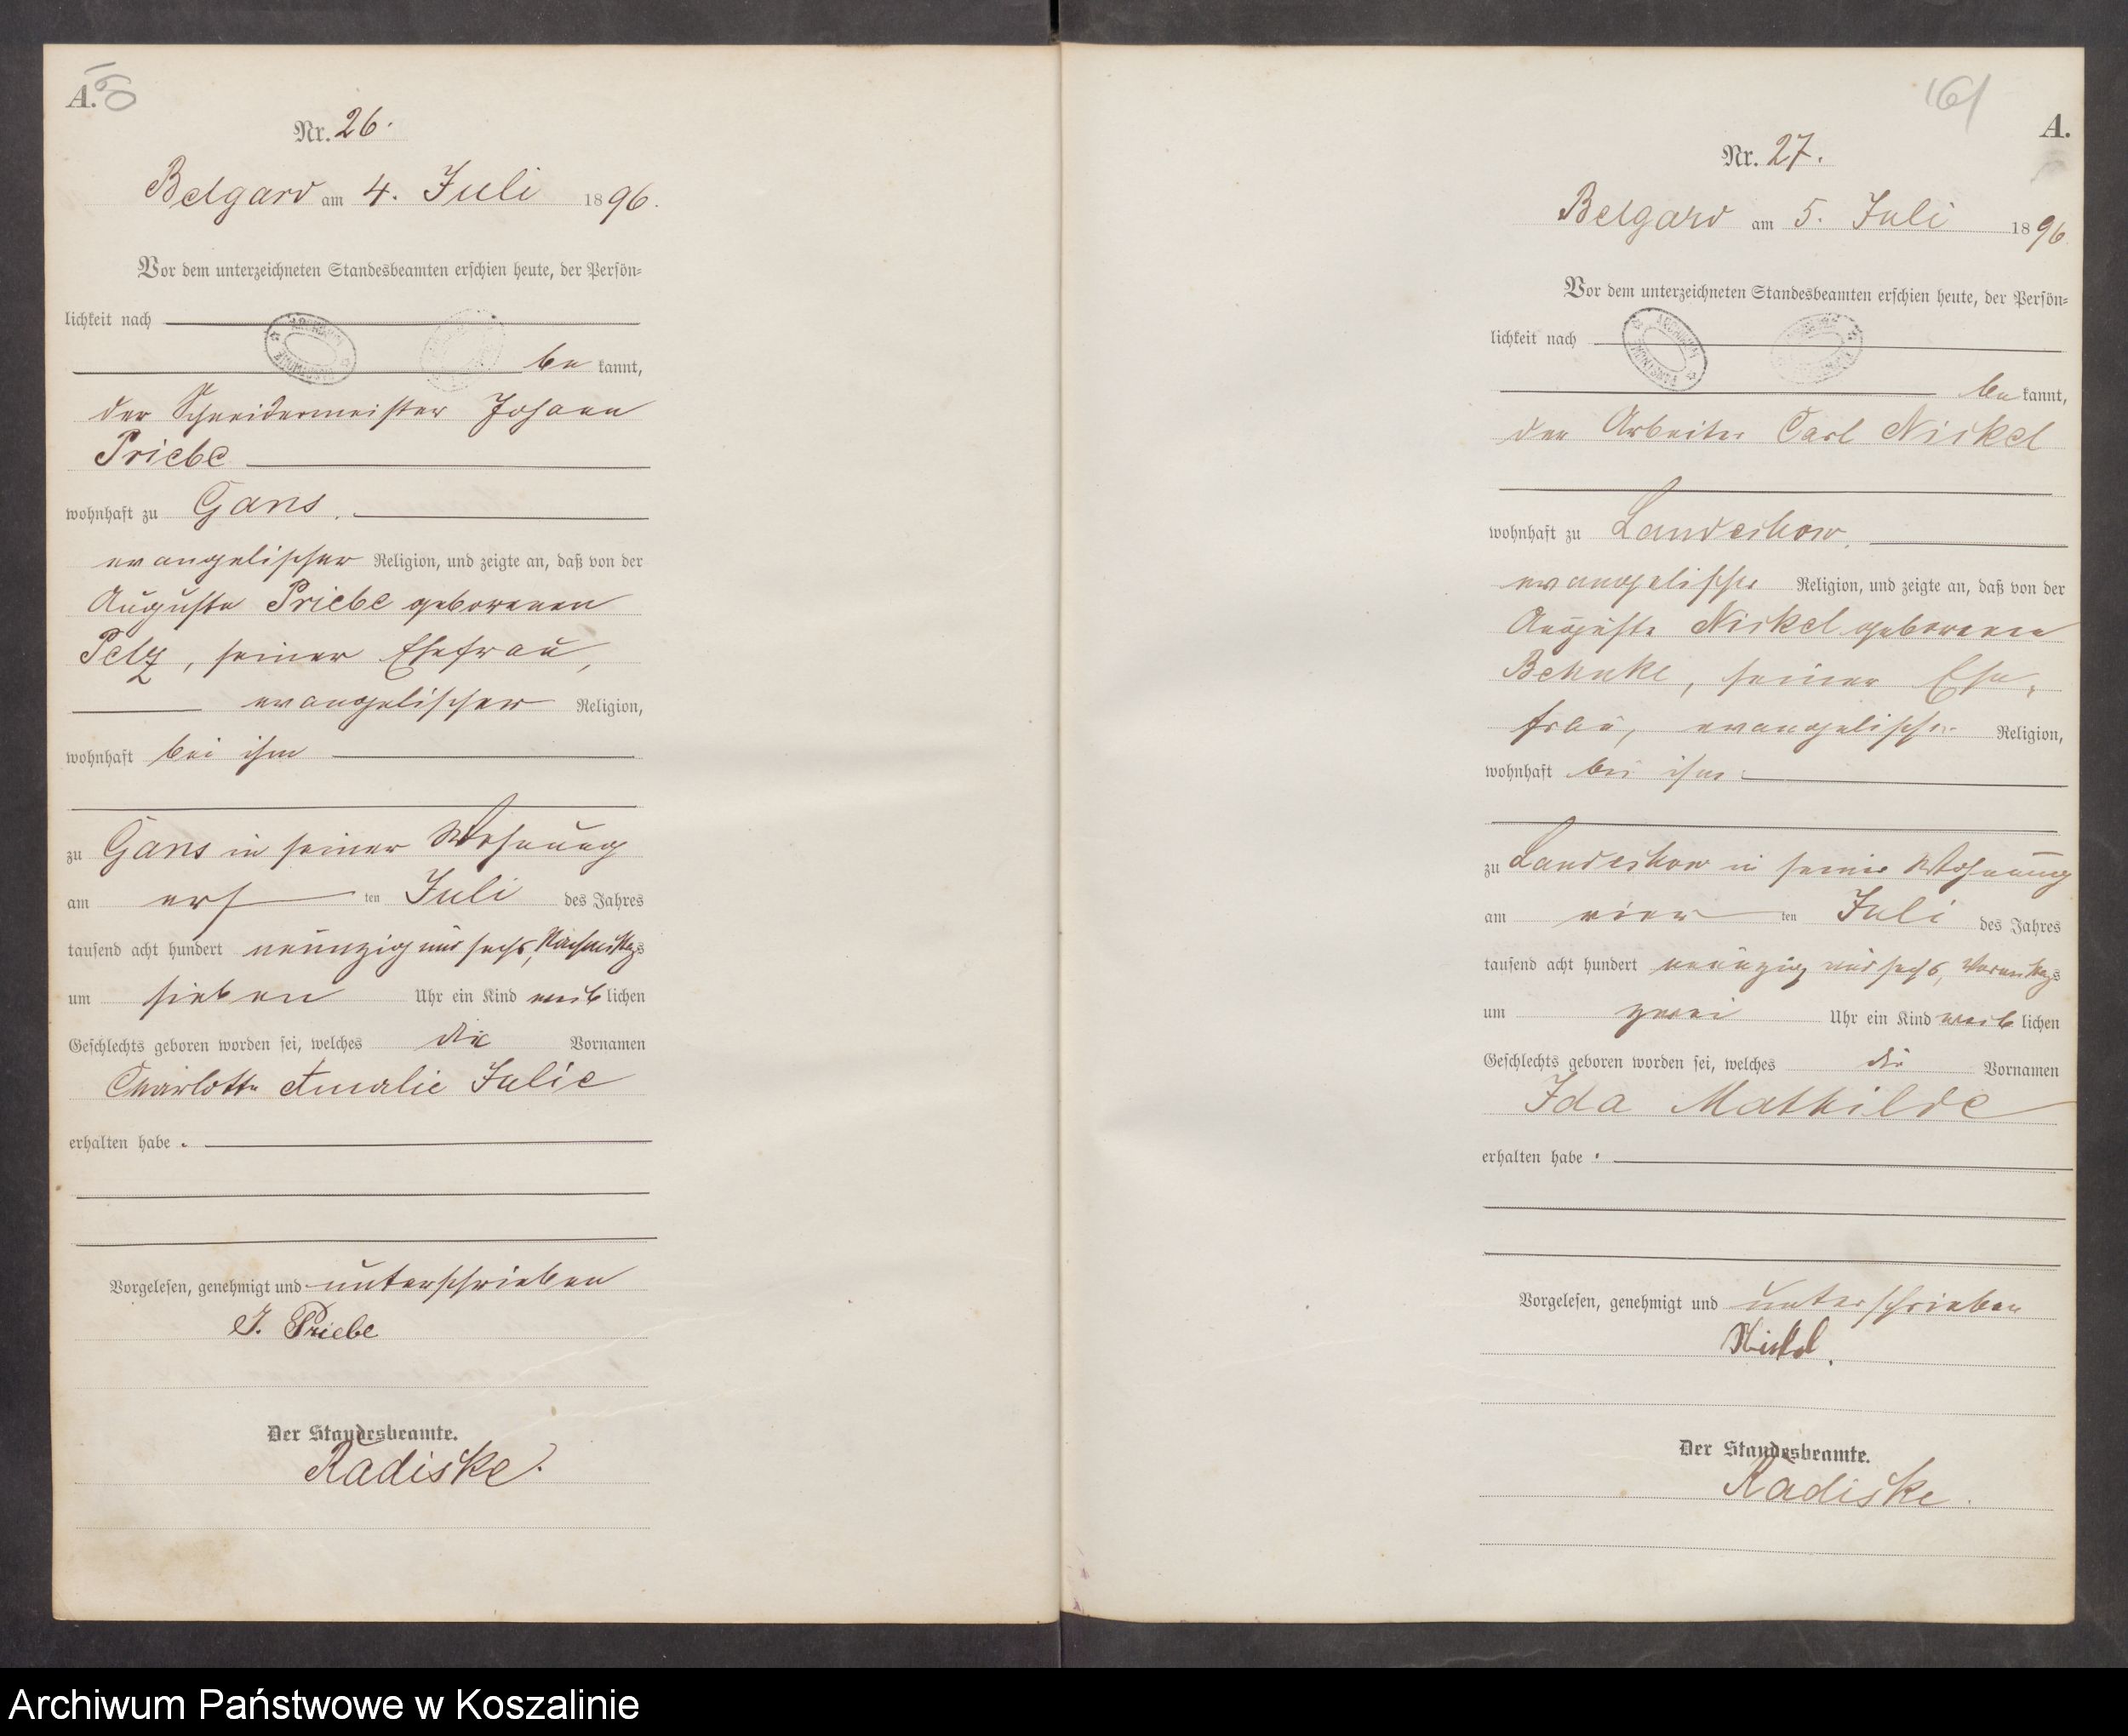 A.
160
Nr. 26.
Belgard am 4. Juli 1896.
Vor dem unterzeichneten Standesbeamten erschien heute, der Persön-
lichkeit nach
be kannt,
der Schneidermeister Johann
Priebe
wohnhaft zu Gans.
evangelischer Religion, und zeigte an, daß von der
Auguste Priebe geborenen
Pelz, seiner Ehefrau,
evangelischer Religion,
wohnhaft bei ihm
zu Gans in seiner Wohnung
am erst ten Juli des Jahres
tausend acht hundert neunzig und sechs, Nachmittags
um sieben Uhr ein Kind weib lichen
Geschlechts geboren worden sei, welches die Vornamen
Charlotte Amalie Julie
erhalten habe.
Vorgelesen, genehmigt und unterschrieben
J. Priebe
Der Standesbeamte.
Radiske.
161
A.
Nr. 27.
Belgard am 5. Juli 1896
Vor dem unterzeichneten Standesbeamten erschien heute, der Persön-
lichkeit nach
be kannt,
der Arbeiter Carl Nickel
wohnhaft zu Landechow.
evangelischer Religion, und zeigte an, daß von der
Auguste Nickel geborenen
Behnke, seiner Ehe-
frau, evangelischer Religion,
wohnhaft bei ihm
zu Landechow in seiner Wohnung
am vier ten Juli des Jahres
tausend acht hundert neunzig und sechs, Vormittags
um zwei Uhr ein Kind weib lichen
Geschlechts geboren worden sei, welches die Vornamen
Ida Mathilde
erhalten habe.
Vorgelesen, genehmigt und unterschrieben
Nickel.
Der Standesbeamte.
Radiske.
Archiwum Państwowe w Koszalinie